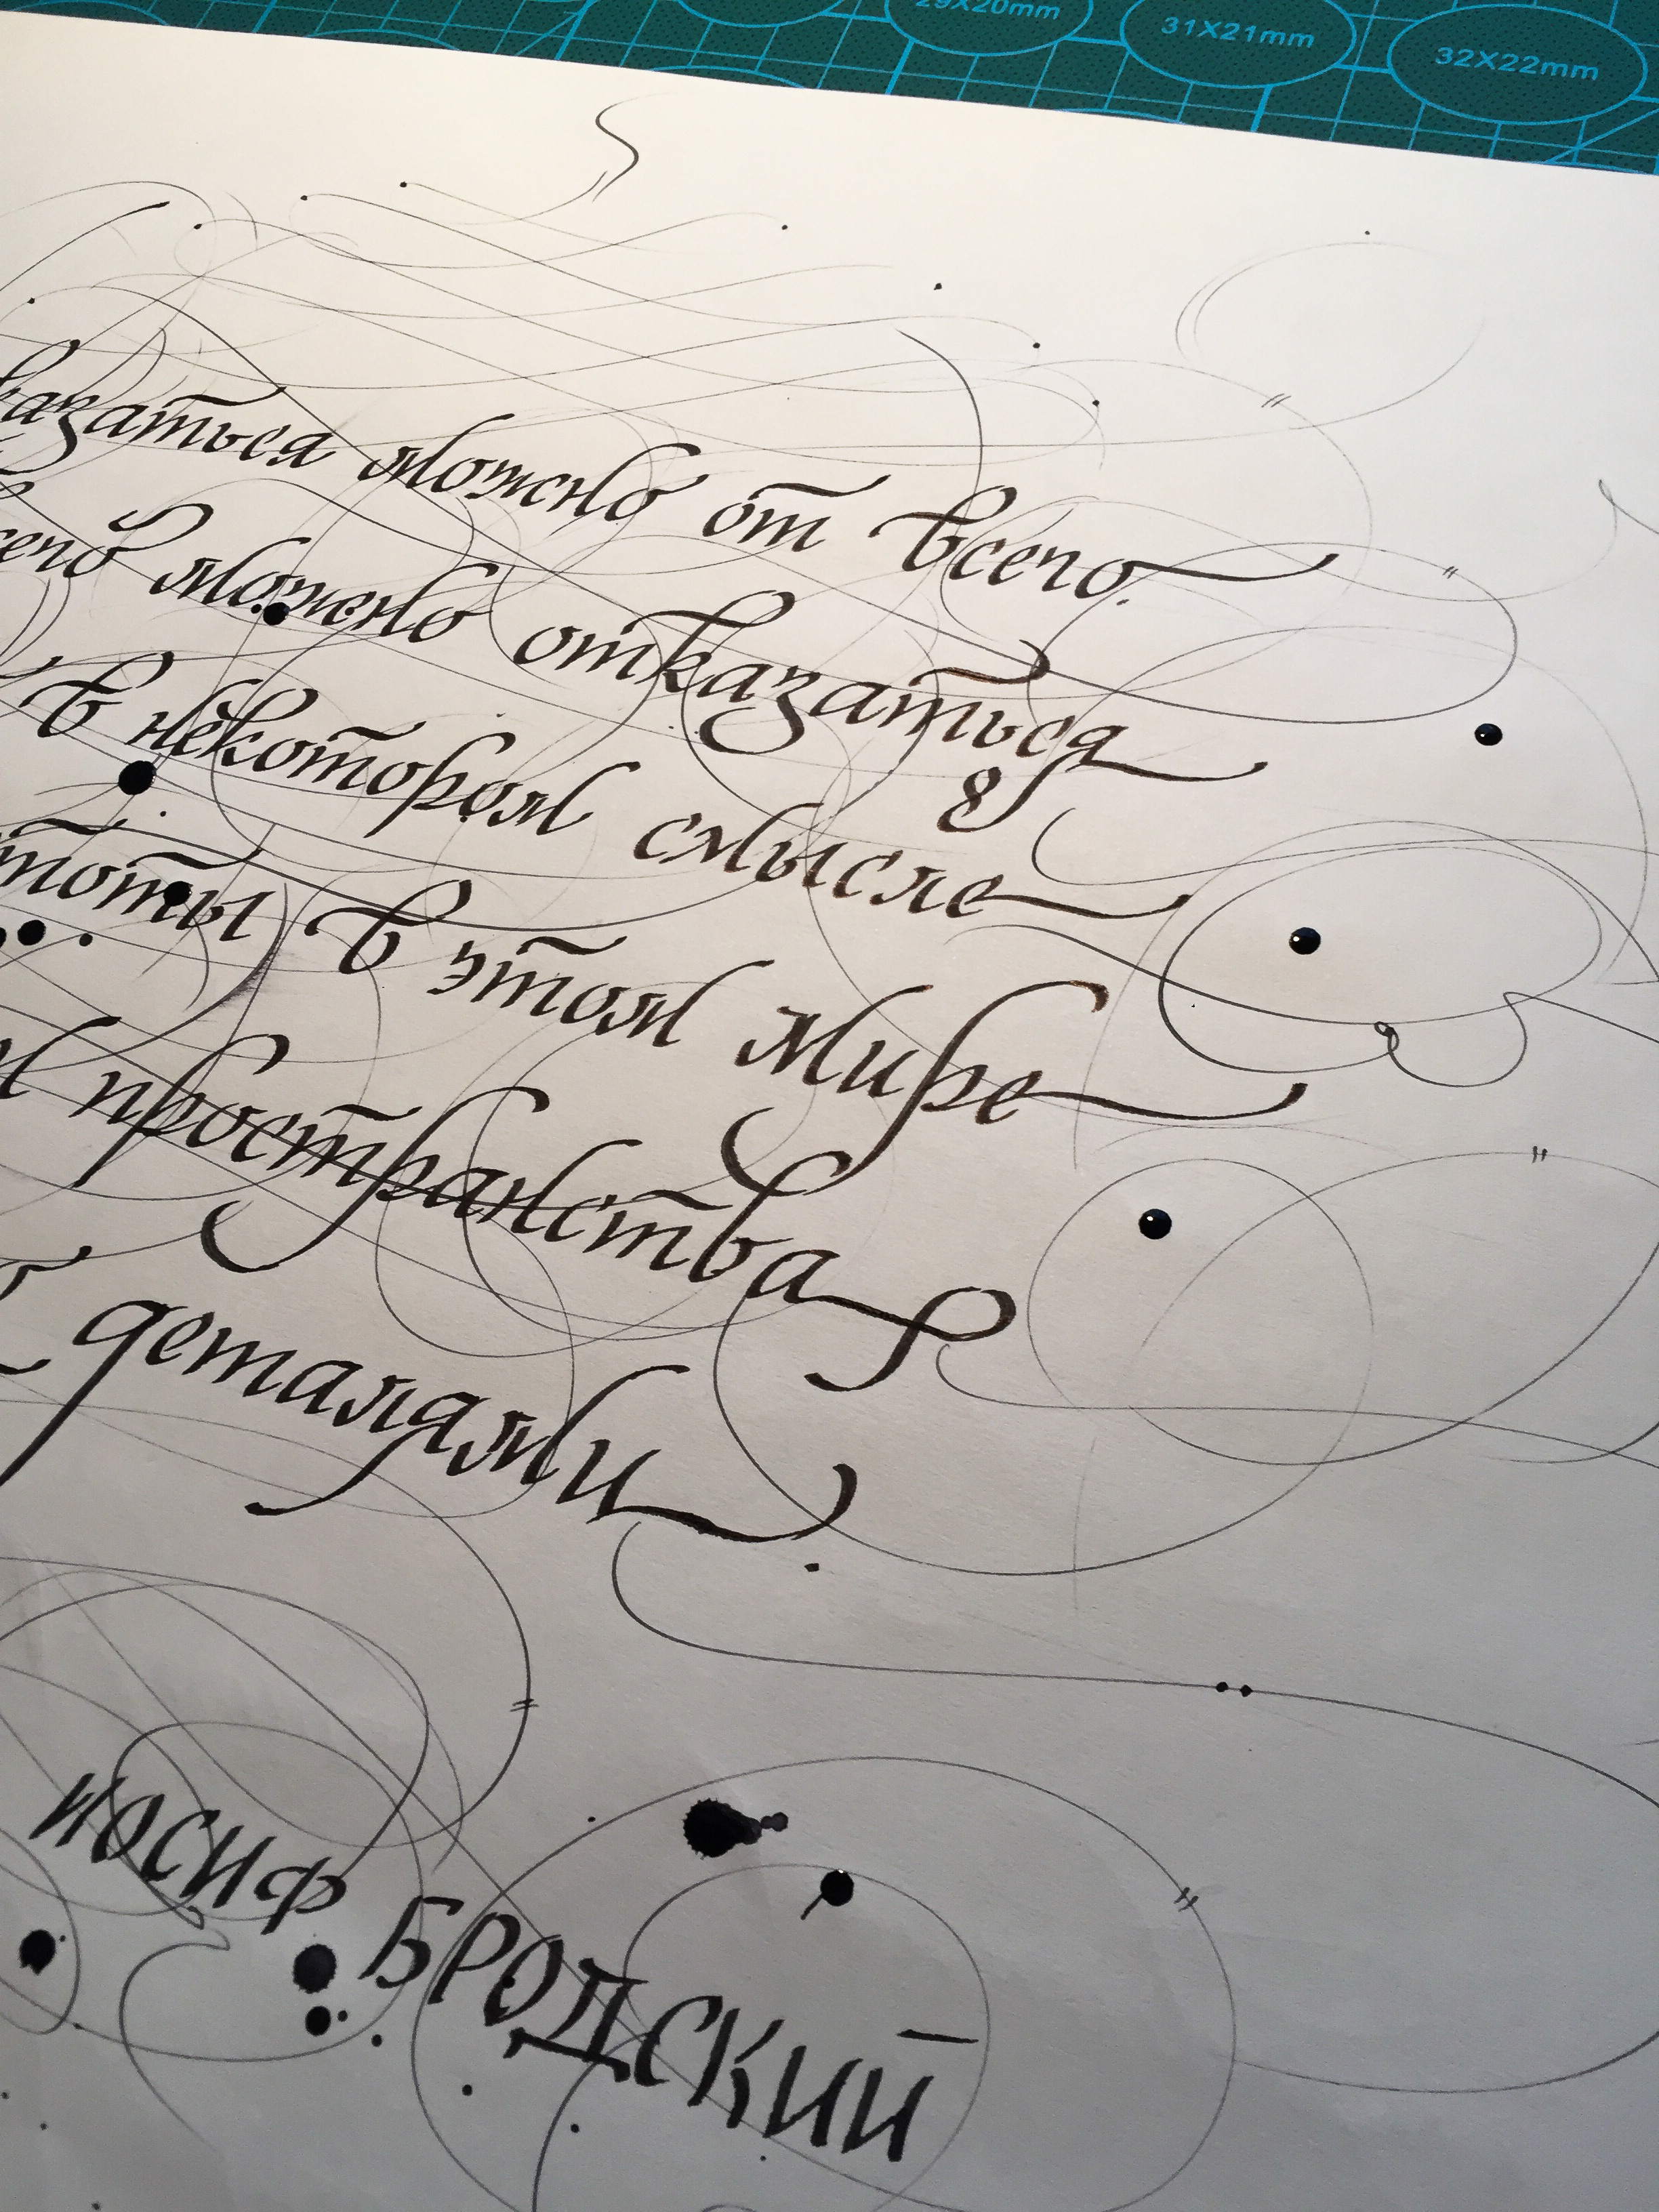 29X20mm 31X21mm 32X22mm
казаться можно от всего.
сего можно отказаться
в некотором смысле
тоты в этом мире
пространства
деталями.
ИОСИФ БРОДСКИЙ